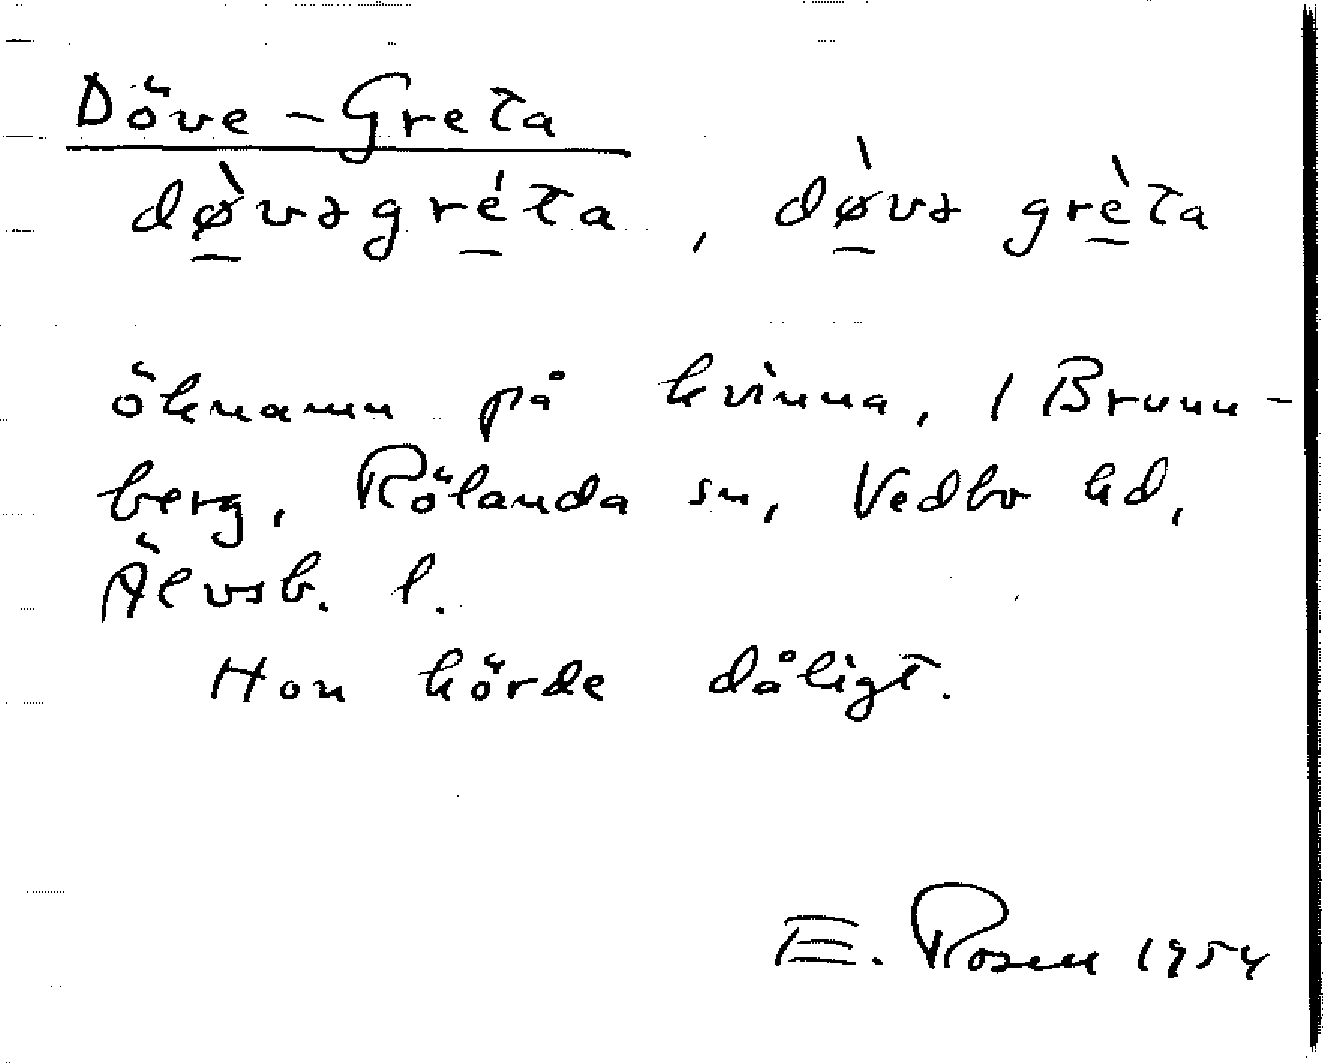 Döve-Greta
dø̀vəgréta, dø̀və grèta
öknamn på kvinna, i Brunn-
berg, Rölanda sn, Vedbo hd,
Älvsb. l.
Hon hörde dåligt.
E. Rosen 1954